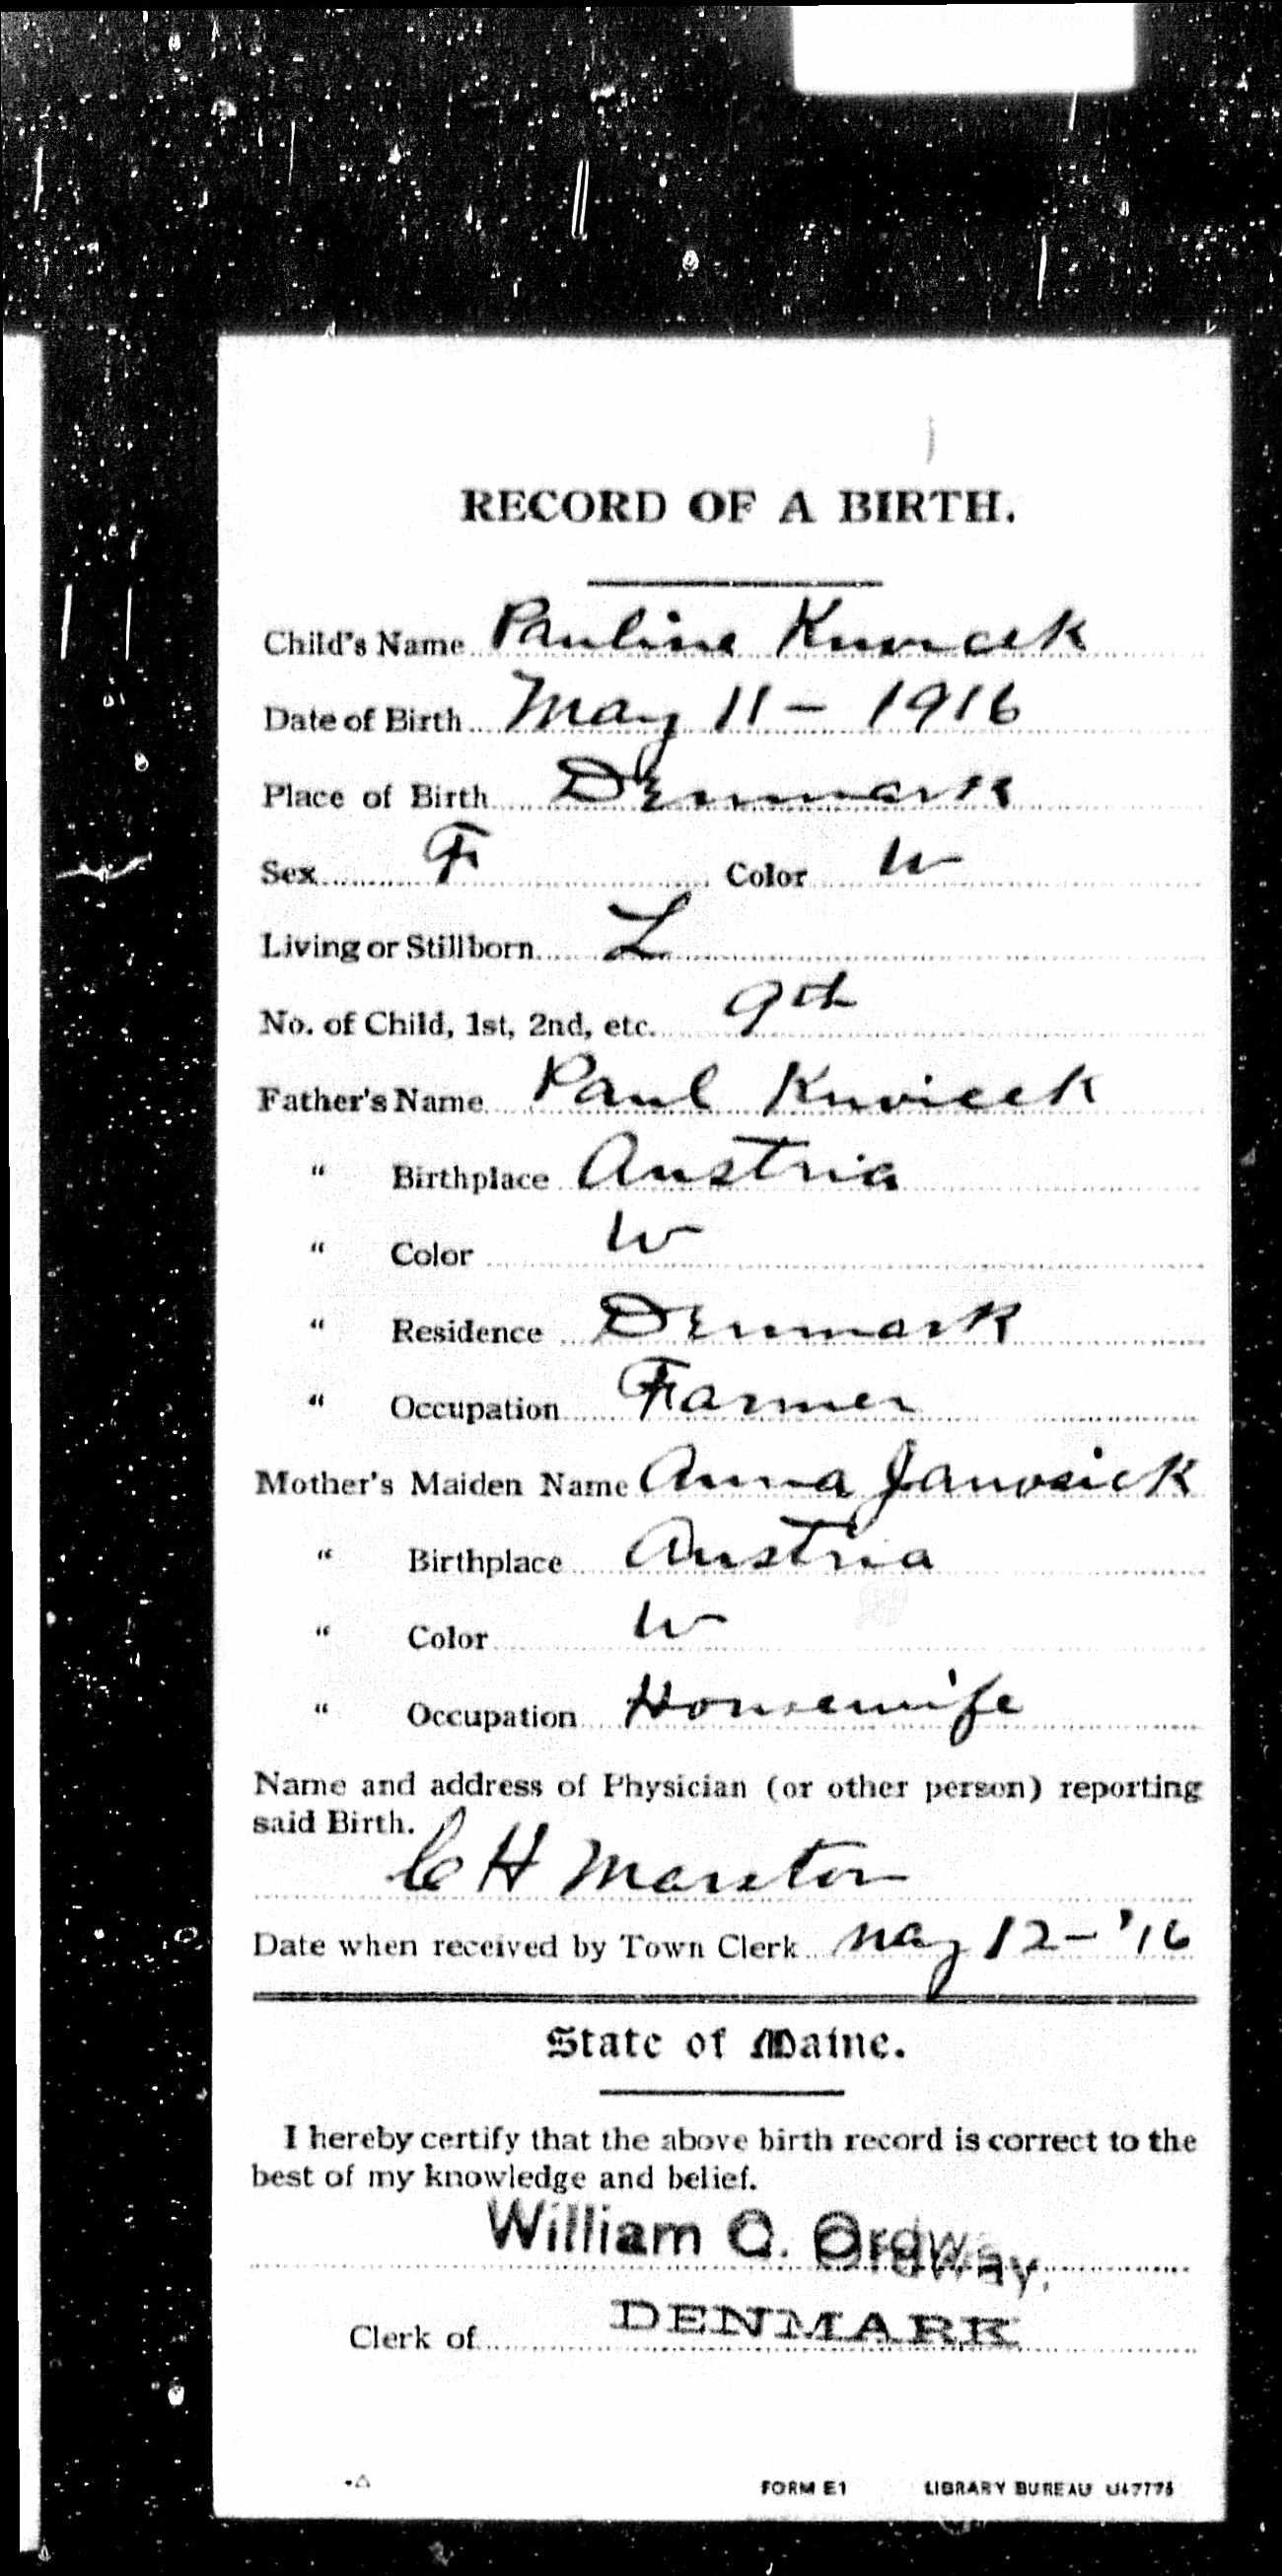 RECORD OF A BIRTH.
Child's Name Pauline
Date of Birth May 11 - 1916
Place of Birth Denmark
Sex F Color W
Living or Stillborn L
No. of Child, 1st, 2nd, etc. 9th
Father's Name Paul Kuvicek
" Birthplace Austria
" Color W
" Residence Denmark
" Occupation Farmer
Mother's Maiden Name Anna
" Birthplace Austria
" Color W
" Occupation Housewife
Name and address of Physician (or other person) reporting
said Birth.
C H Marston
Date when received by Town Clerk May 12 - '16
State of Maine.
I hereby certify that the above birth record is correct to the
best of my knowledge and belief.
William O. Ordway.
Clerk of DENMARK
FORM E1 LIBRARY BUREAU